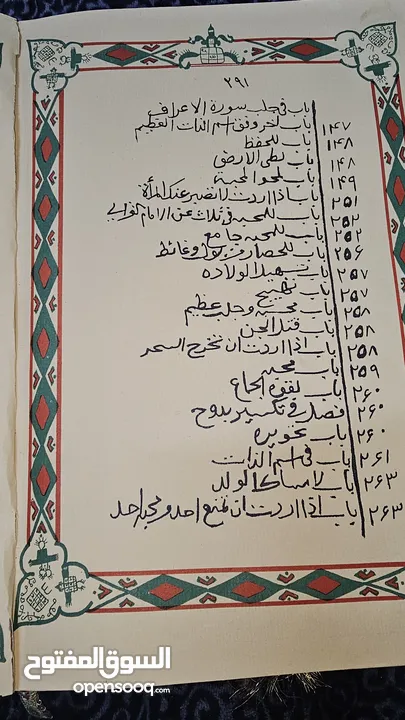 ٢٩١
باب في جلب سورة الاعراف
١٤٧ باب لخر وفق اسم الذات العظيم
١٤٨ باب للحفظ
١٤٨ باب لطى الارض
١٤٩ باب لمحو المحبة
٢٥١ باب اذا اردت لا تصير عنك المرأة
٢٥٢ باب للمحبه في ثلاث عن الامام
٢٥٢ باب للمحبه جامع
٢٥٦ باب للحصار من بول وغائط
٢٥٧ باب تسهيل الولاده
٢٥٧ باب تهييج
٢٥٨ باب محبه وجلب عظيم
٢٥٨ باب قتل الجن
٢٥٨ باب اذا اردت ان تخرج السحر
٢٥٩ باب محبه
٢٦٠ باب لقوة الجماع
٢٦٠ فصل في تكسير بدوح
٢٦٠ باب تخويره
٢٦١ باب في اسم الذات
٢٦٣ باب لامساك الولد
٢٦٣ باب اذا اردت ان تمنع احد ومجيه احد
السوق المفتوح
opensooq.com